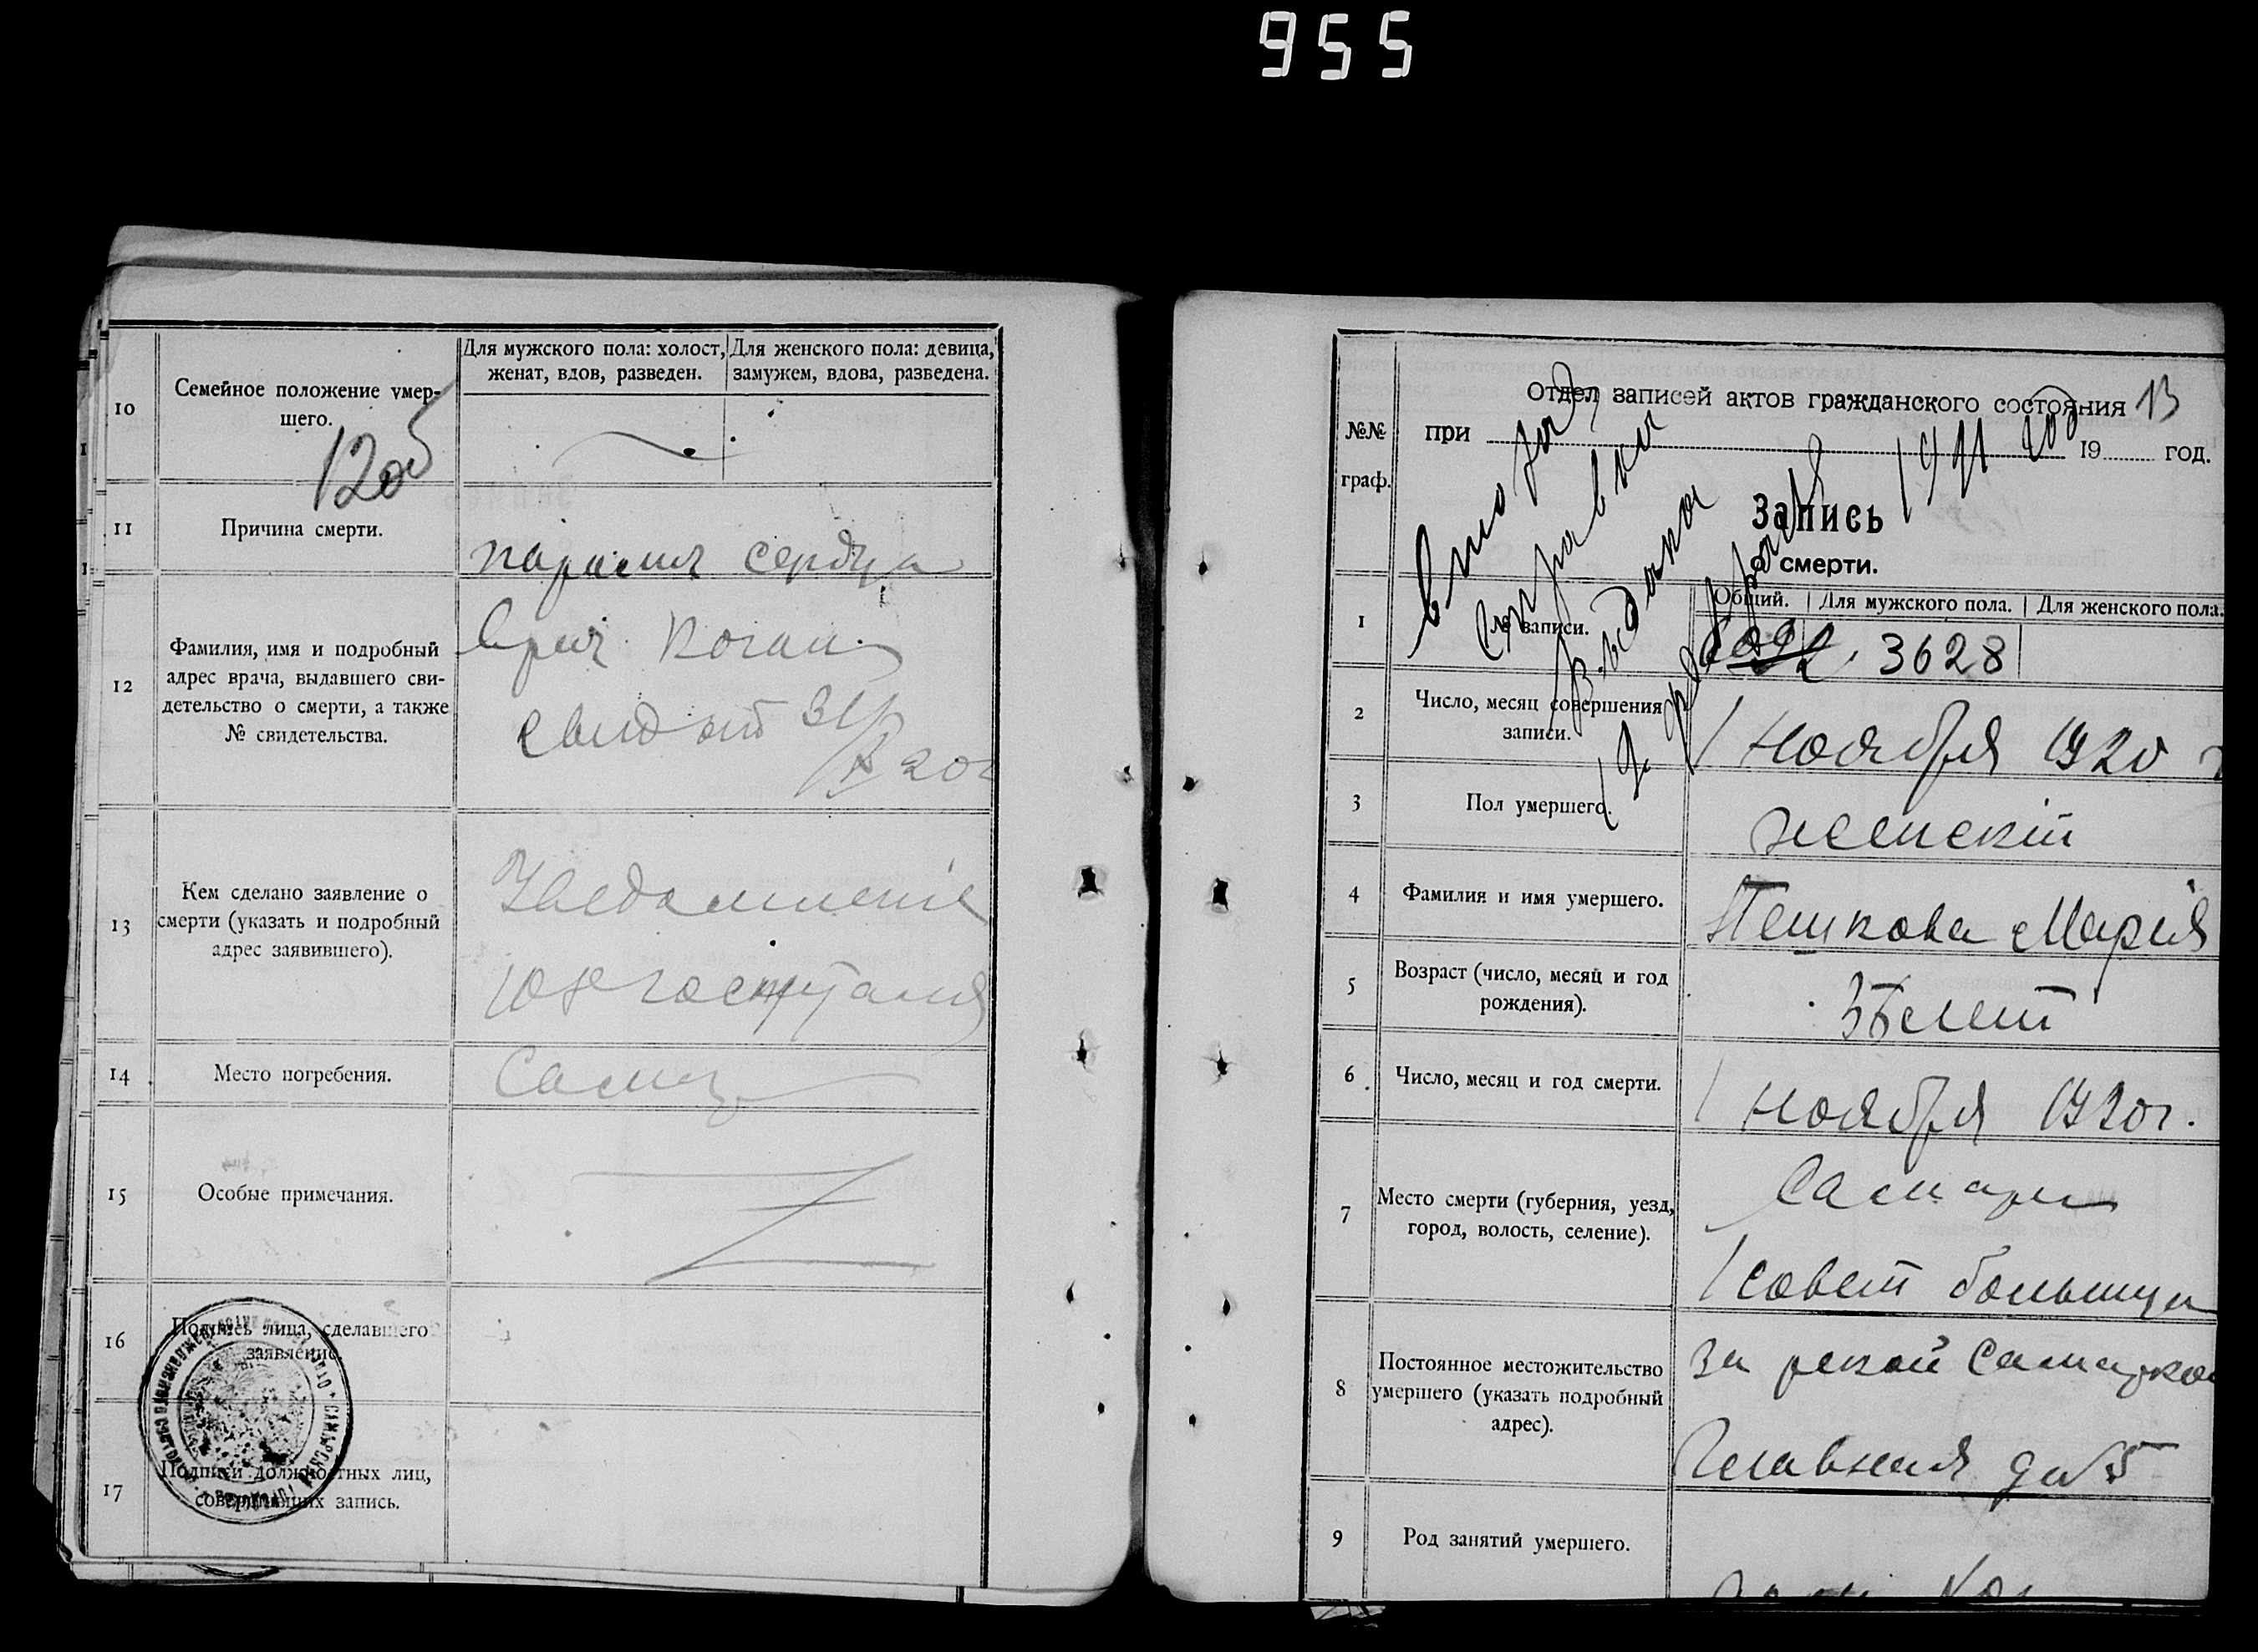 955
10
Семейное положение умер-
шего.
Для мужского пола: холост,
женат, вдов, разведен.
Для женского пола: девица,
замужем, вдова, разведена.
120б
11
Причина смерти.
паралич сердца
12
Фамилия, имя и подробный
адрес врача, выдавшего сви-
детельство о смерти, а также
№ свидетельства.
Врач Коган
свид от 31/X 20г
13
Кем сделано заявление о
смерти (указать и подробный
адрес заявившего).
Уведомленіе
госпиталя
14
Место погребения.
15
Особые примечания.
16
Подпись лица, сделавшего
заявление.
17
Подписи должностных лиц,
совершавших запись.
№№
граф.
Отдел записей актов гражданского состояния
13
при
19 год.
Запись
о смерти.
справка
выдана
1
№ записи.
Общий.
Для мужского пола.
Для женского пола.
3628
2
Число, месяц совершения
записи.
1 Ноября 1920 г
3
Пол умершего.
женскій
4
Фамилия и имя умершего.
Пешкова Мария
5
Возраст (число, месяц и год
рождения).
лет
6
Число, месяц и год смерти.
1 Ноября 1920г.
7
Место смерти (губерния, уезд,
город, волость, селение).
Самара
1 совет больница
8
Постоянное местожительство
умершего (указать подробный
адрес).
за рекой Самаркой
Главная
9
Род занятий умершего.